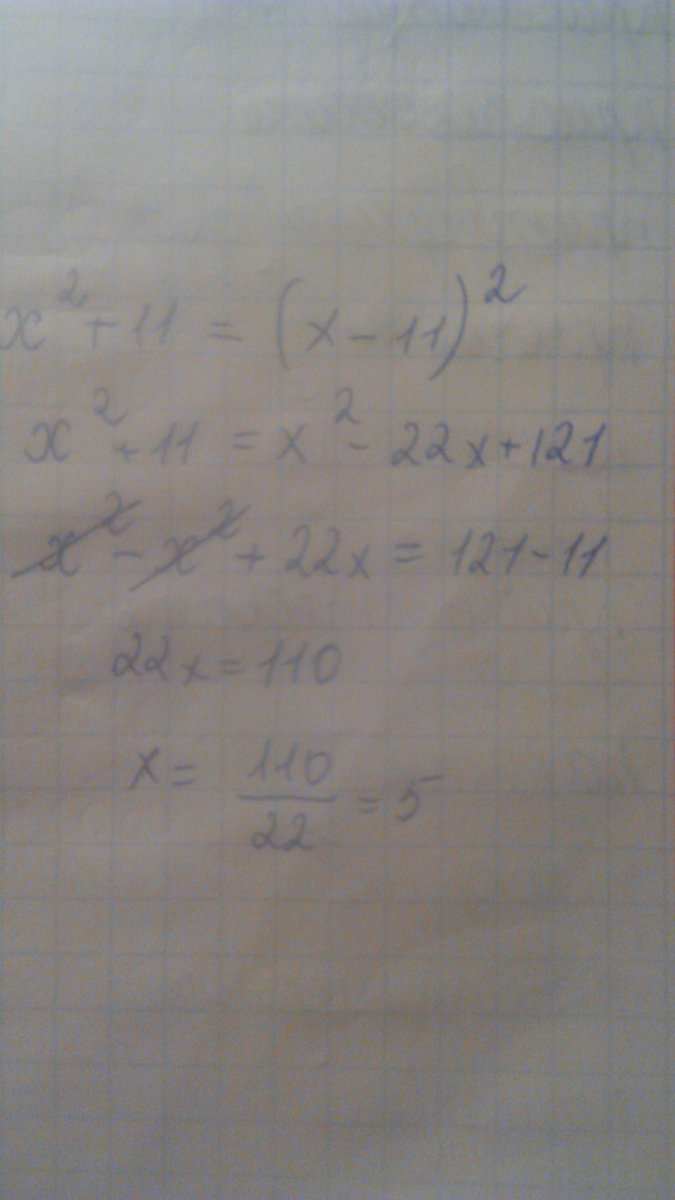 x² + 11 = (x - 11)²
x² + 11 = x² - 22x + 121
x² - x² + 22x = 121 - 11
22x = 110
x = 110/22 = 5